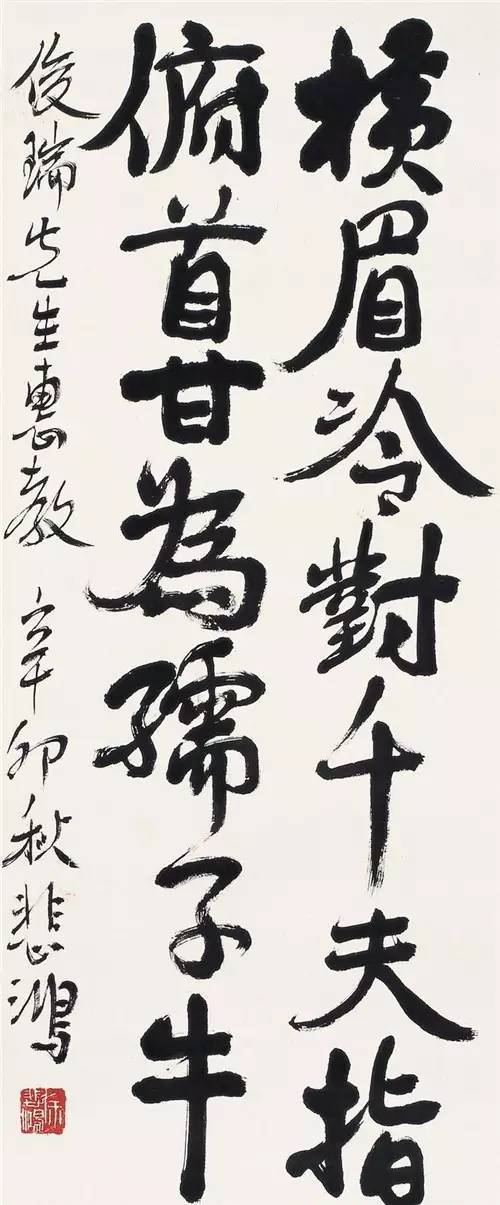 横眉冷對千夫指
俯首甘为孺子牛
俊瑞先生惠教 辛卯秋悲鴻